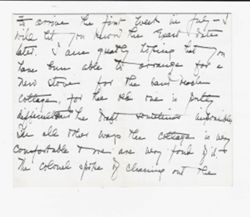 to arrive the first week in July - I
will let you know the exact date
later. I am greatly hoping that you
have been able to arrange for a
new stove for the
cottage, for the old one is
the draft sometimes is impossible
In all other ways the cottage is very
comfortable & we are very fond of it -
The colonel spoke of cleaning out the